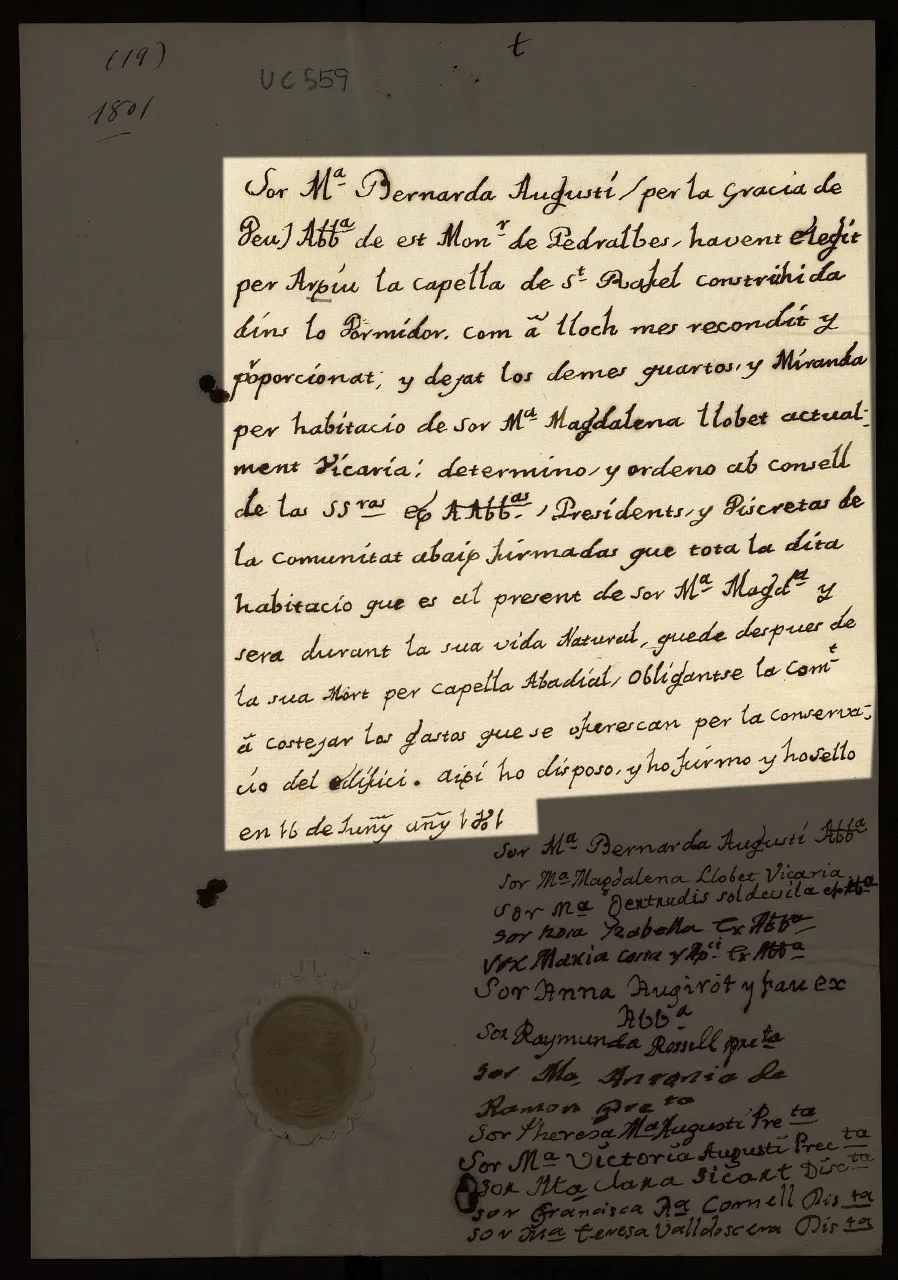 (19)
1801
UC 559
t
Sor Mª Bernarda Augustí, per la Gracia de
Deu) Abbª de est Monr de Pedralbes, havent elegit
per Arxiu la capella de St Rafel construhida
dins lo Dormidor, com â lloch mes recondit y
pôporcionat; y dejat los demes quartos, y Miranda
per habitacio de Sor Mª Magdalena Llobet actual-
ment Vicaria; determino, y ordeno ab consell
de las SSras ex AAbbas, Presidents, y Discretas de
la comunitat abaix firmadas que tota la dita
habitacio que es al present de Sor Mª Magdª y
sera durant la sua vida Natural, quede despues de
la sua Mort per capella Abadial, obligantse la Comt
â costejar los gastos que se oferescan per la conserva-
cio del edifici. Aixi ho disposo, y ho firmo y ho sello
en 16 de Juny añy 1801
Sor Mª Bernarda Augustí Abbª
Sor Mª Magdalena Llobet Vicaria
Sor Mª Gertrudis Soldevila ex Abª
Sor Ex Abbª
Maria Costa y Ex Abbª
Sor Anna Augirot y Pau ex
Abbª
Sor Raymunda Rossell preta
Sor Ma Antonia de
Ramon Preta
Sor Theresa Mª Augusti Preta
Sor Mª Victoria Augusti Precta
Sor Mª Clara Sicart Discta
Sor Francisca Rª Cornell Dista
Sor Mª Teresa Valldoscera Dista